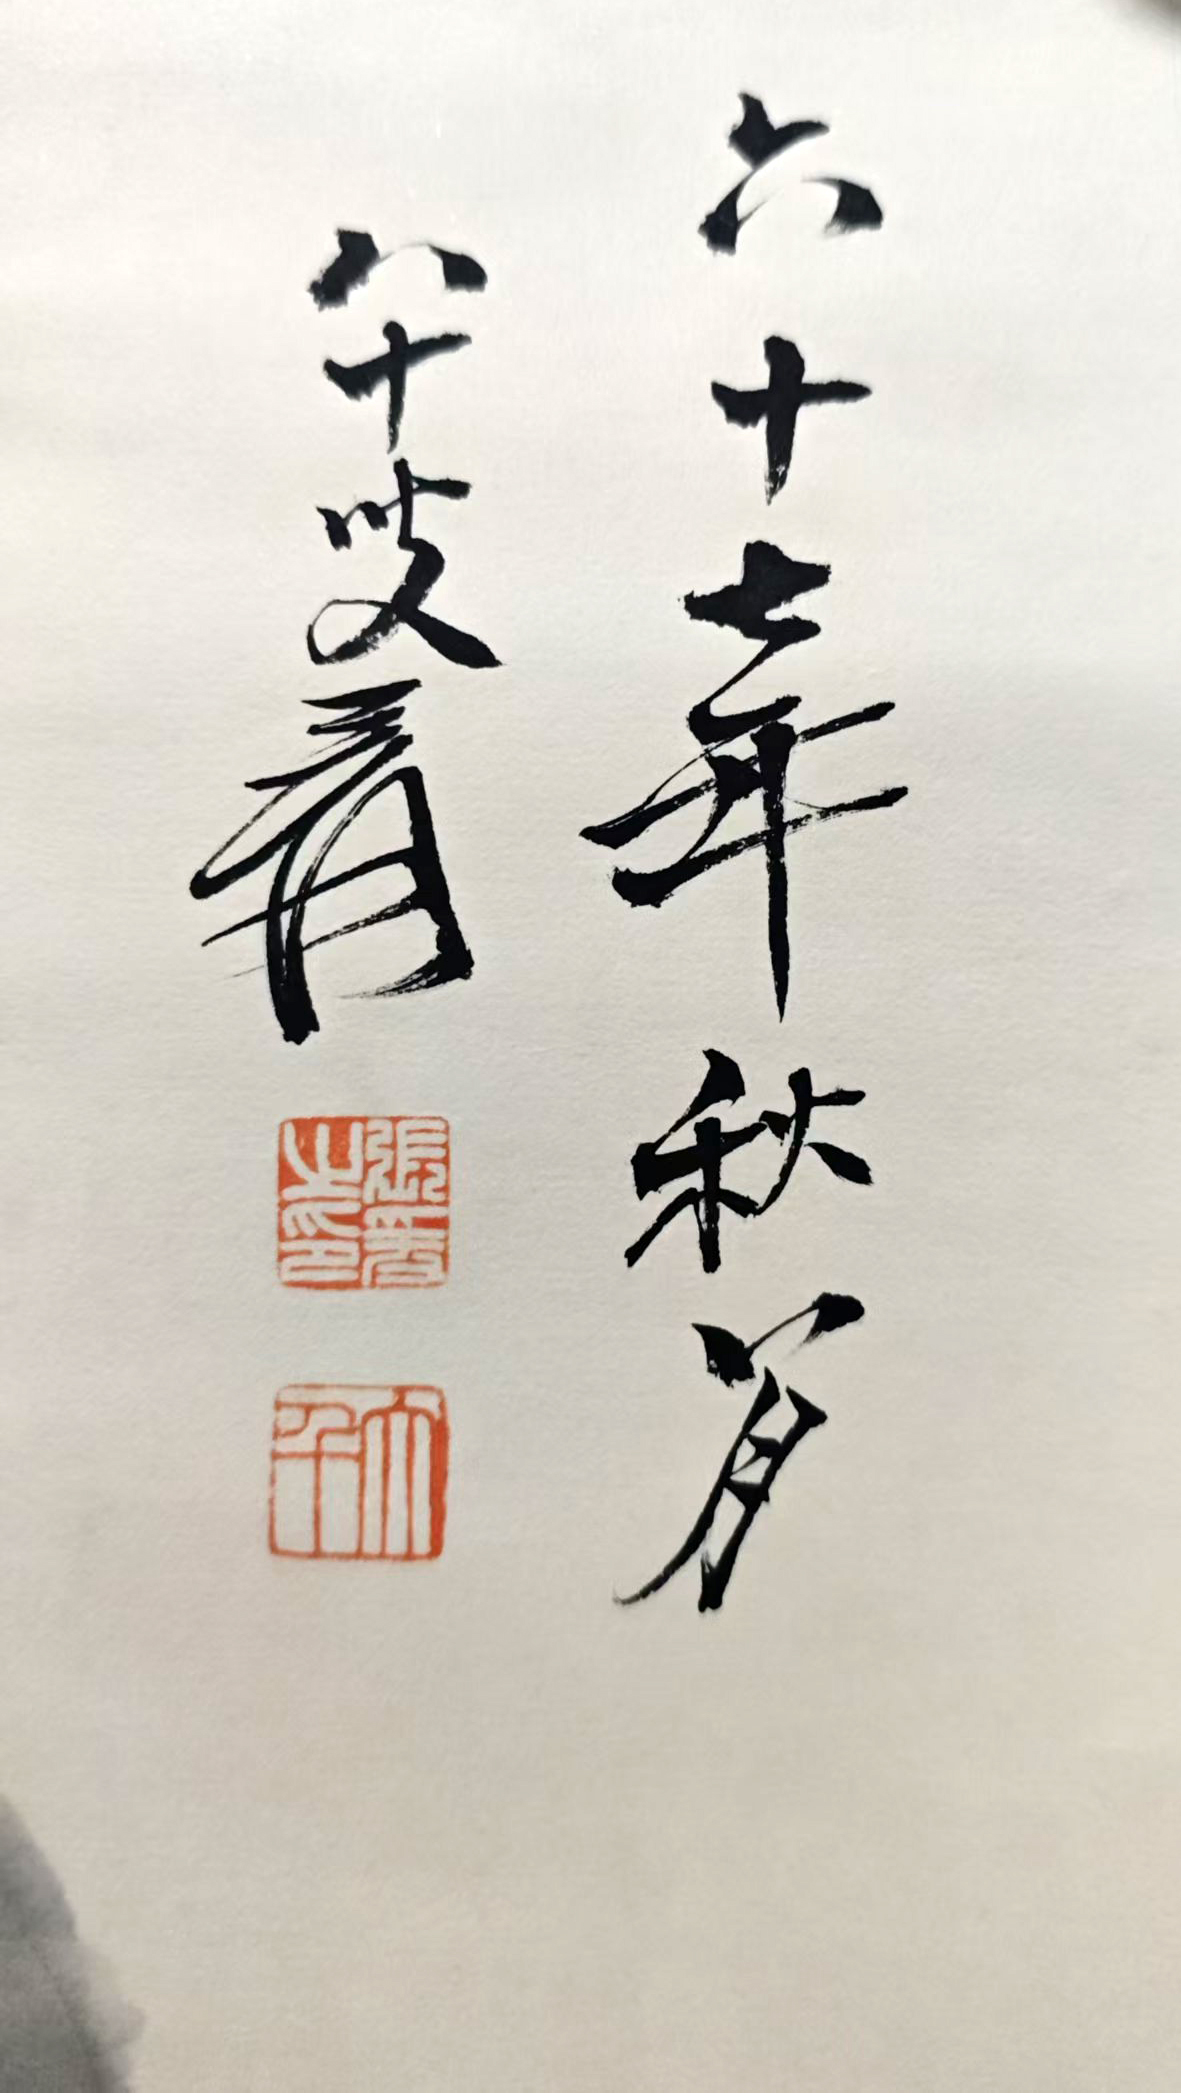 六十七年秋八月
八十叟爰
張爰之印
大千